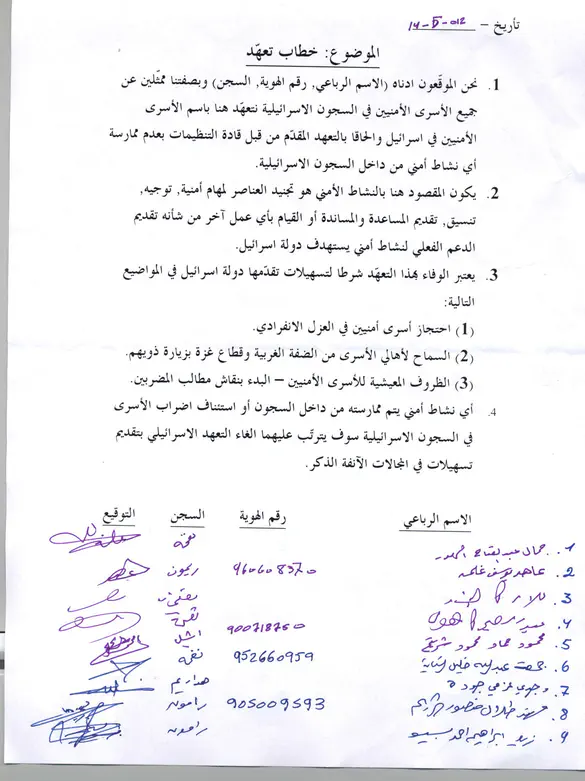 تأريخ – 14-5-012
الموضوع: خطاب تعهّد
1. نحن الموقّعون ادناه (الاسم الرباعي, رقم الهوية, السجن) وبصفتنا ممثّلين عن
جميع الأسرى الأمنيين في السجون الاسرائيلية نتعهد هنا باسم الأسرى
الأمنيين في اسرائيل والحاقا بالتعهد المقدّم من قبل قادة التنظيمات بعدم ممارسة
أي نشاط أمني من داخل السجون الاسرائيلية.
2. يكون المقصود هنا بالنشاط الأمني هو تجنيد العناصر لمهام أمنية, توجيه,
تنسيق, تقديم المساعدة والمساندة أو القيام بأي عمل آخر من شأنه تقديم
الدعم الفعلي لنشاط أمني يستهدف دولة اسرائيل.
3. يعتبر الوفاء بهذا التعهّد شرطا لتسهيلات تقدّمها دولة اسرائيل في المواضيع
التالية:
(1) احتجاز أسرى أمنيين في العزل الانفرادي.
(2) السماح لأهالي الأسرى من الضفة الغربية وقطاع غزة بزيارة ذويهم.
(3) الظروف المعيشية للأسرى الأمنيين – البدء بنقاش مطالب المضربين.
4. أي نشاط أمني يتم ممارسته من داخل السجون أو استئناف اضراب الأسرى
في السجون الاسرائيلية سوف يترتّب عليهما الغاء التعهد الاسرائيلي بتقديم
تسهيلات في المجالات الآنفة الذكر.
الاسم الرباعي رقم الهوية السجن التوقيع
1. جمال نفحة
2. عاهد ريمون
3.
4.
5. محمود 900718750
6. عبدالله 952660959 نفحة
7. وجدي جودة هداريم
8. 905009593 رامون
9. زيد ابراهيم احمد بسيسي رامون